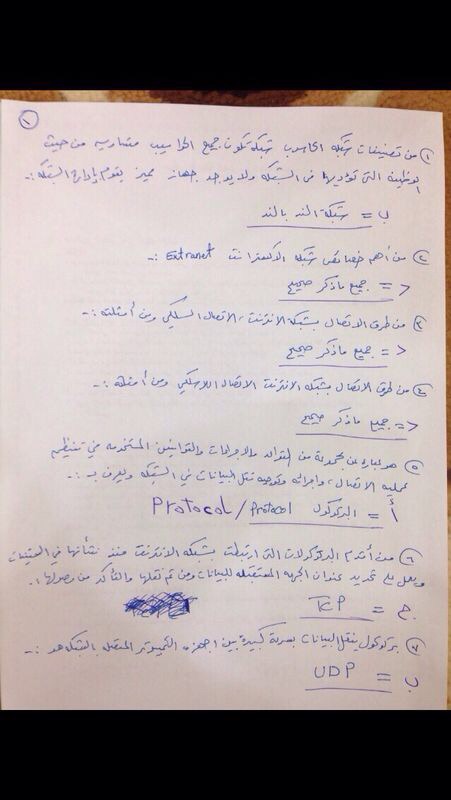 ١
① من تصنيفات شبكة الحاسوب شبكة تكون جميع الحواسيب متساوية من حيث
الوظيفة التي تؤديها في الشبكة ولا يوجد جهاز مميز يقوم بإدارة الشبكة :-
ب = شبكة الند بالند
② من أهم خصائص شبكة الاكسترا نت Extranet :-
د = جميع ماذكر صحيح
③ من طرق الاتصال بشبكة الانترنت ، الاتصال السلكي ومن أمثلته :-
د = جميع ماذكر صحيح
④ من طرق الاتصال بشبكة الانترنت الاتصال اللاسلكي ومن أمثلة :-
د = جميع ماذكر صحيح
⑤ هو عبارة عن مجموعة من القواعد والاجراءات والقوانين المستخدمه في تنظيم
عملية الاتصال ، واجرائه وتوجيه نقل البيانات في الشبكة ويعرف بـ :-
أ = البرتوكول Protocol / Protocol
⑥ من أقدم البرتوكولات التي ارتبطت بشبكة الانترنت منذ نشأتها في
ويعمل على تحديد عنوان الجهه المستقبله للبيانات ومن ثم نقلها والتأكد من وصولها :-
ج = TCP
⑦ برتوكول ينقل البيانات بسرعة كبيرة بين اجهزه الكمبيوتر المتصله بالشبكة هو :-
ب = UDP